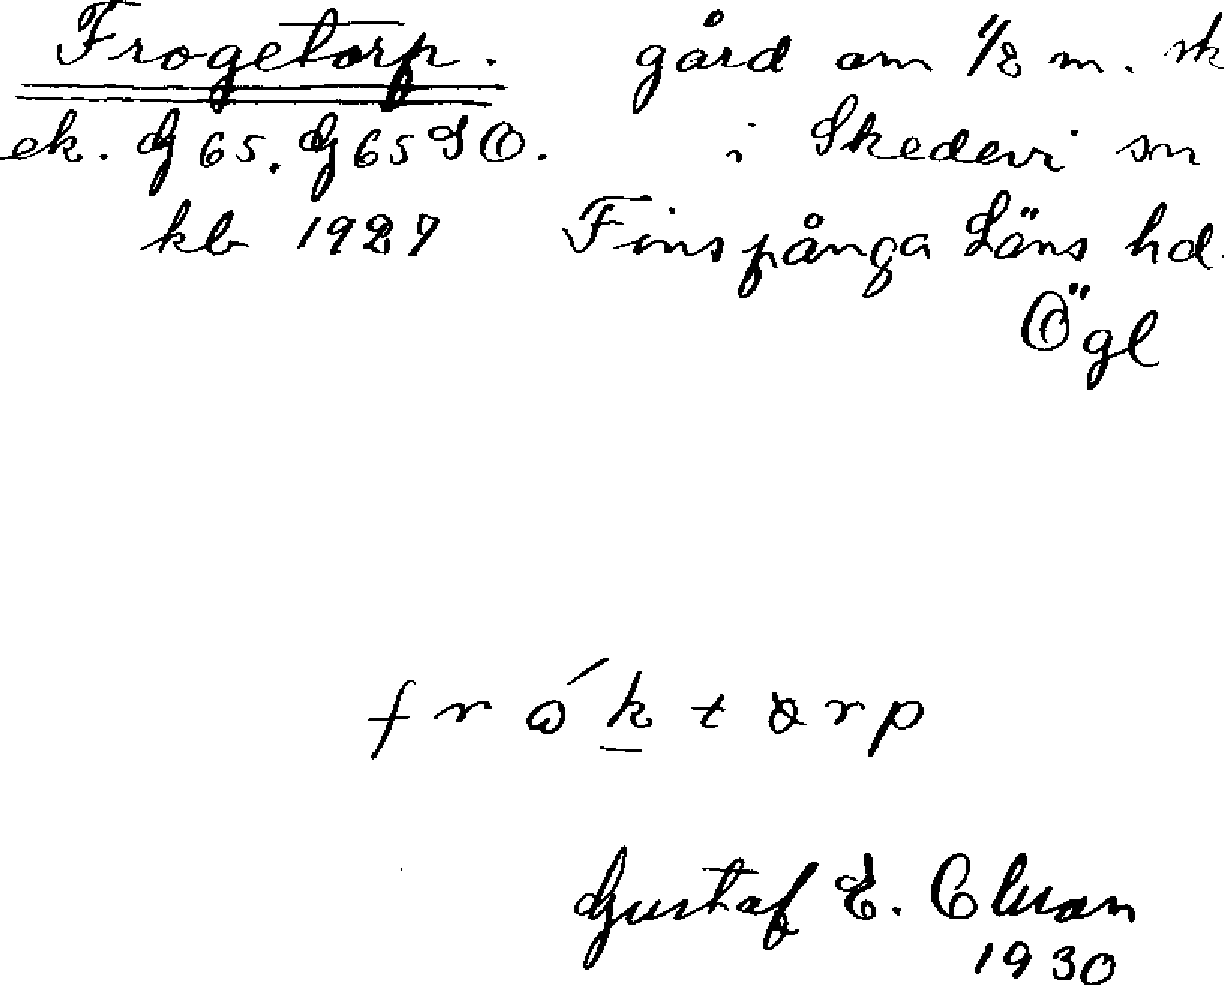 Frogetorp. gård om 1/2 m. sk
ek. G 65. G 65 SO. i Skedevi sn
kb 1927 Finspånga Läns hd.
Ögl
frǻktørp
Gustaf E.
1930